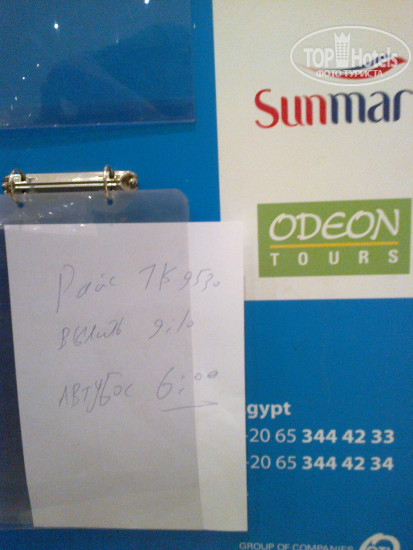 TOP Hotels
ФОТО ТУРИСТА
Sunmar
ODEON
TOURS
7К 9530
9:10
АВТУБОС 6:00
gypt
-20 65 344 42 33
-20 65 344 42 34
GROUP OF COMPANIES